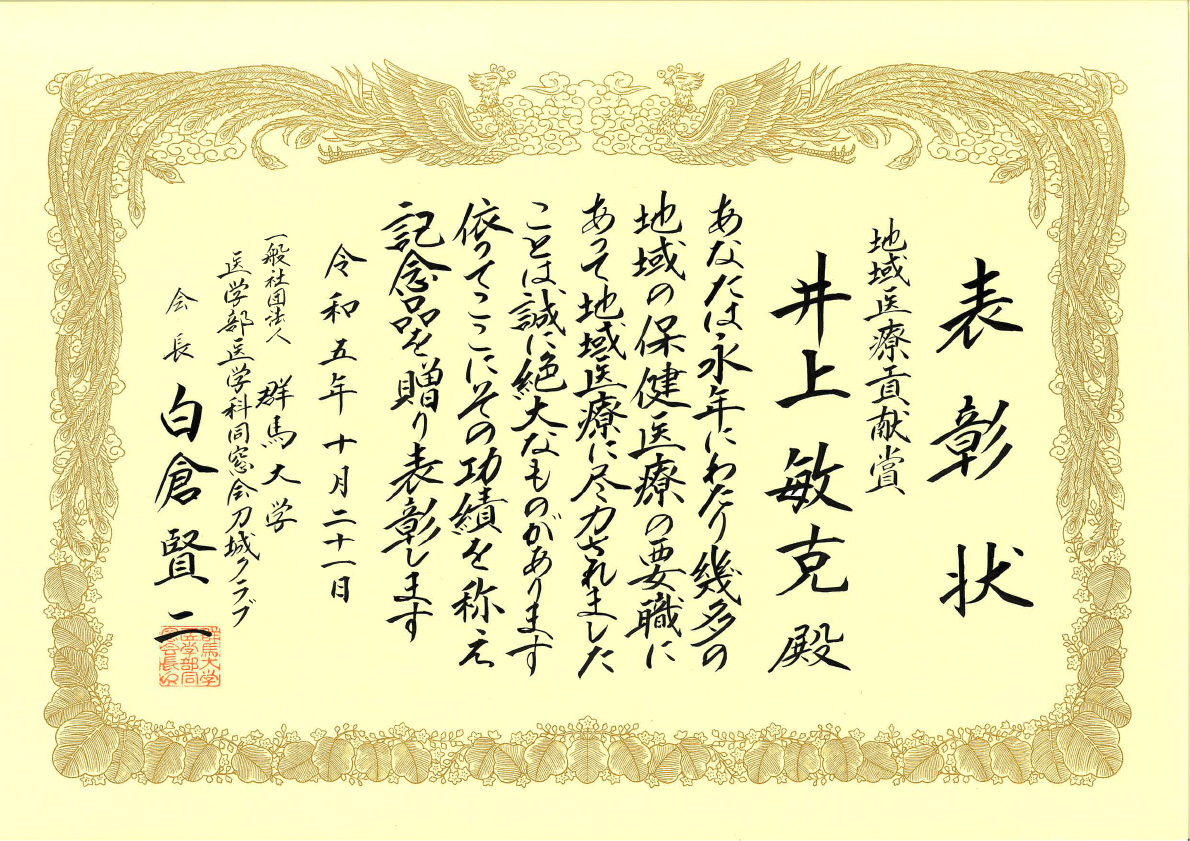 表彰状
地域医療貢献賞
井上敏克殿
あなたは永年にわたり幾多の
地域の保健医療の要職に
あって地域医療に尽力されました
ことは、誠に絶大なものがあります
依ってここにその功績を称え
記念品を贈り表彰します
令和五年十月二十一日
一般社団法人 群馬大学
医学部医学科同窓会刀城クラブ
会長 白倉賢二
群馬大学
医学部同
窓会長之